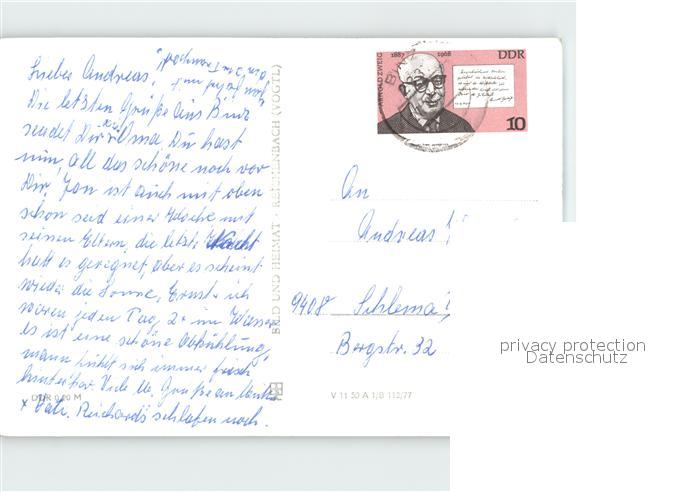 Lieber Andreas!
Die letzten Grüße aus Binz
sendet Dir Oma. Du hast
nun all das schöne noch vor
Dir! Jan ist auch mit oben
schon seid einer Woche mit
seinen Eltern, die letzte Nacht
hatt es geregnet, aber es scheint
wieder die Sonne, Ernst + ich
waren jeden Tag 2x im Wasser
es ist eine schöne Abkühlung,
mann fühlt sich immer frisch
hinterher. Viele Grüße an
+ Reichards schlafen noch.
DDR 0,20 M
BILD UND HEIMAT · REICHENBACH (VOGTL)
V 11 50 A 1/B 112/77
ARNOLD ZWEIG 1887 1968 DDR
10
An
Andreas
9408 Schlema
Bergstr. 32
privacy protection
Datenschutz